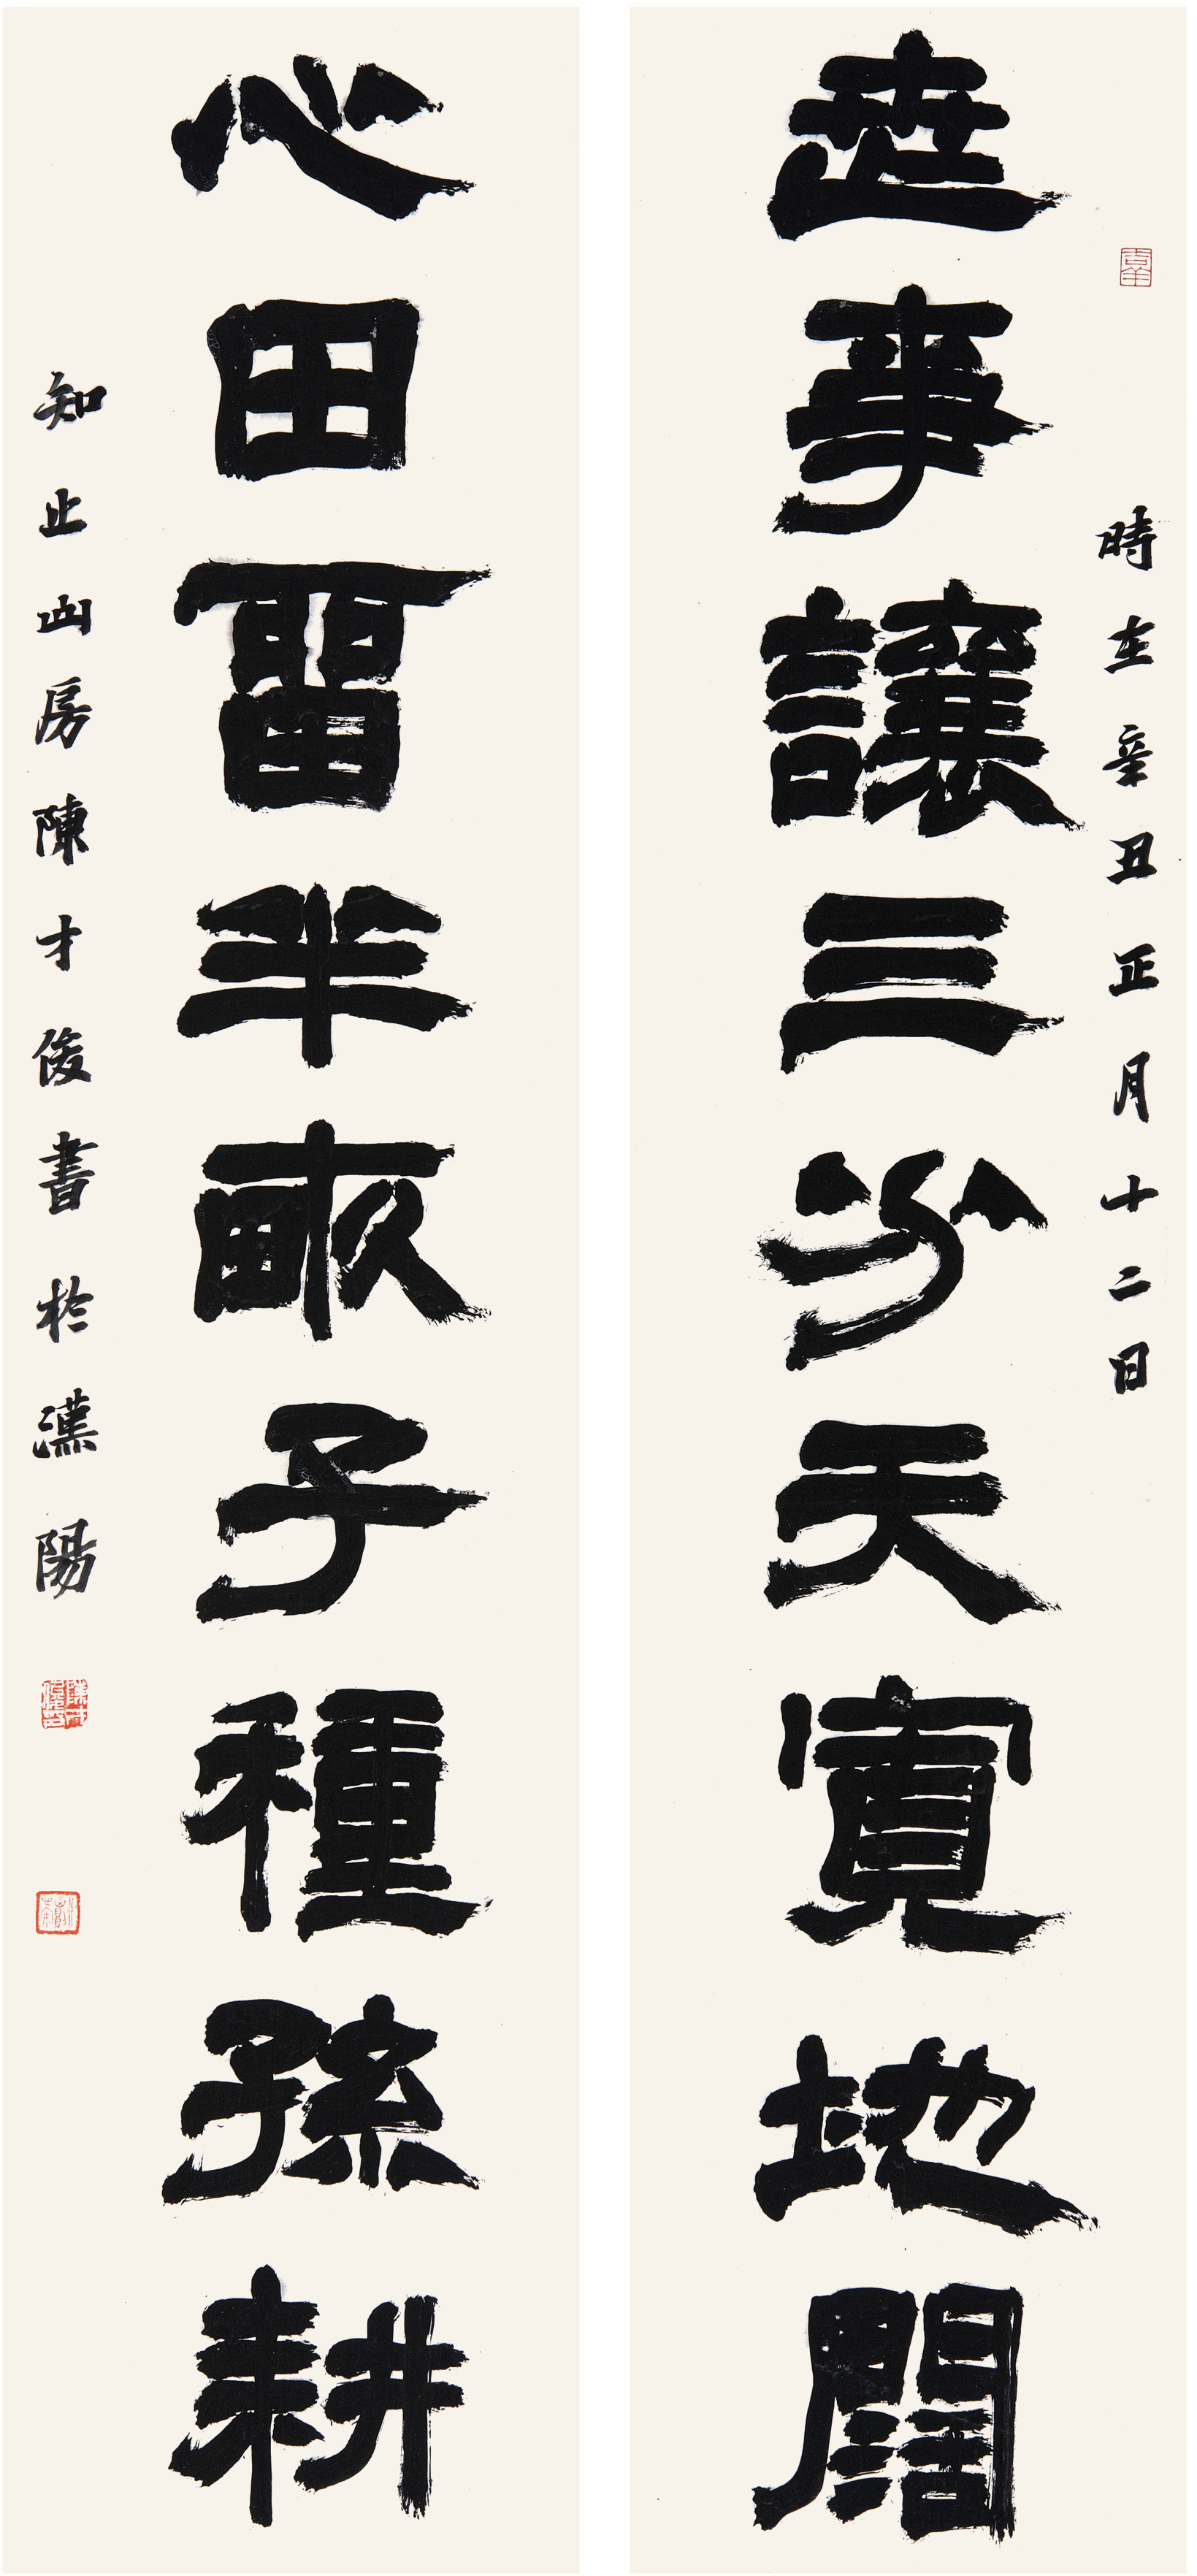 世事讓三分天寬地闊
時在辛丑正月十二日
心田留半畝子種孫耕
知止山房陳才俊書於漢陽